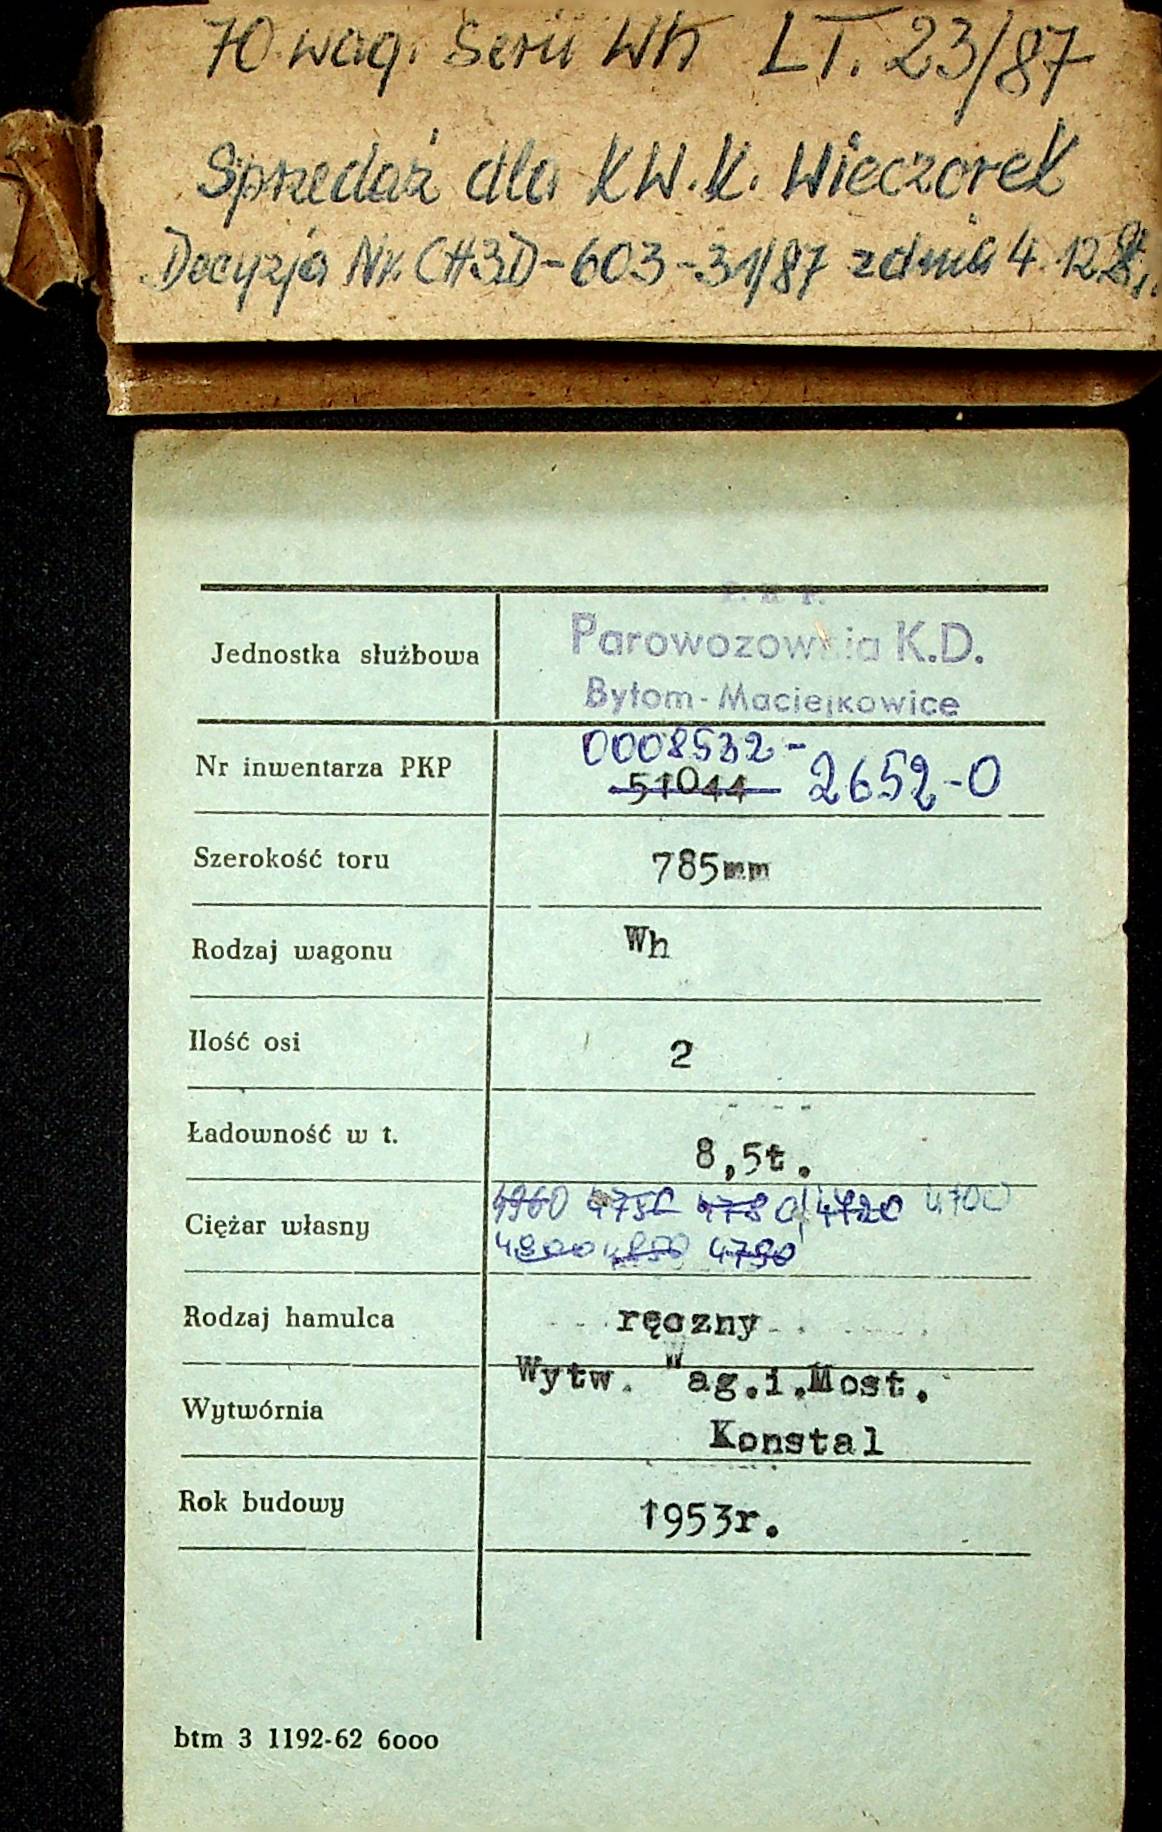 70 wag. Serii Wh LT. 23/87
Sprzedaż dla KW.K. Wieczorek
Decyzja Nr. CH3D-603-31/87 z dnia 4.12
Jednostka służbowa
Parowozownia K.D.
Bytom-Maciejkowice
Nr inwentarza PKP
0008532-
51044 2652-0
Szerokość toru 785mm
Rodzaj wagonu Wh
Ilość osi 2
Ładowność w t. 8,5t.
Ciężar własny
4960 4750 4780 4720 4700
4800 4850 4790
Rodzaj hamulca ręczny
Wytwórnia
Wytw. Wag.i.Most.
Konstal
Rok budowy 1953r.
btm 3 1192-62 6000